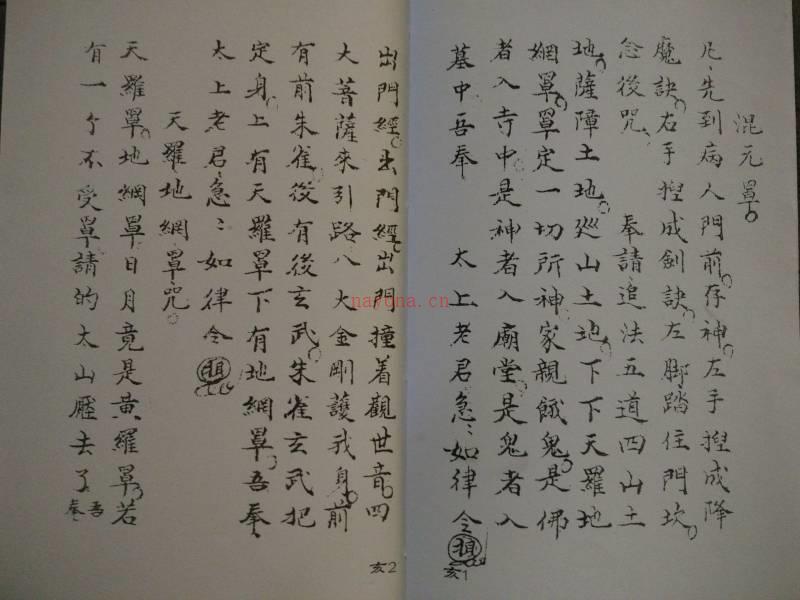 混元罩
凡先到病人門前存神左手揑成降
魔訣右手揑成劍訣左脚踏住門坎
念後咒　奉請追法五道四山土
地薩障土地廵山土地下下天羅地
網罩罩定一切所神家親餓鬼是佛
者入寺中是神者入廟堂是鬼者入
墓中吾奉　太上老君急〻如律令
亥1
出門經出門經出門撞着觀世音四
大菩薩來引路八大金剛護我身前
有前朱雀後有後玄武朱雀玄武把
定身上有天羅罩下有地網罩吾奉
太上老君急〻如律令
天羅地網罩咒
天羅罩地網罩日月竟是黃羅罩若
有一个不受罩請的太山壓去了吾奉
亥2
nayona.cn